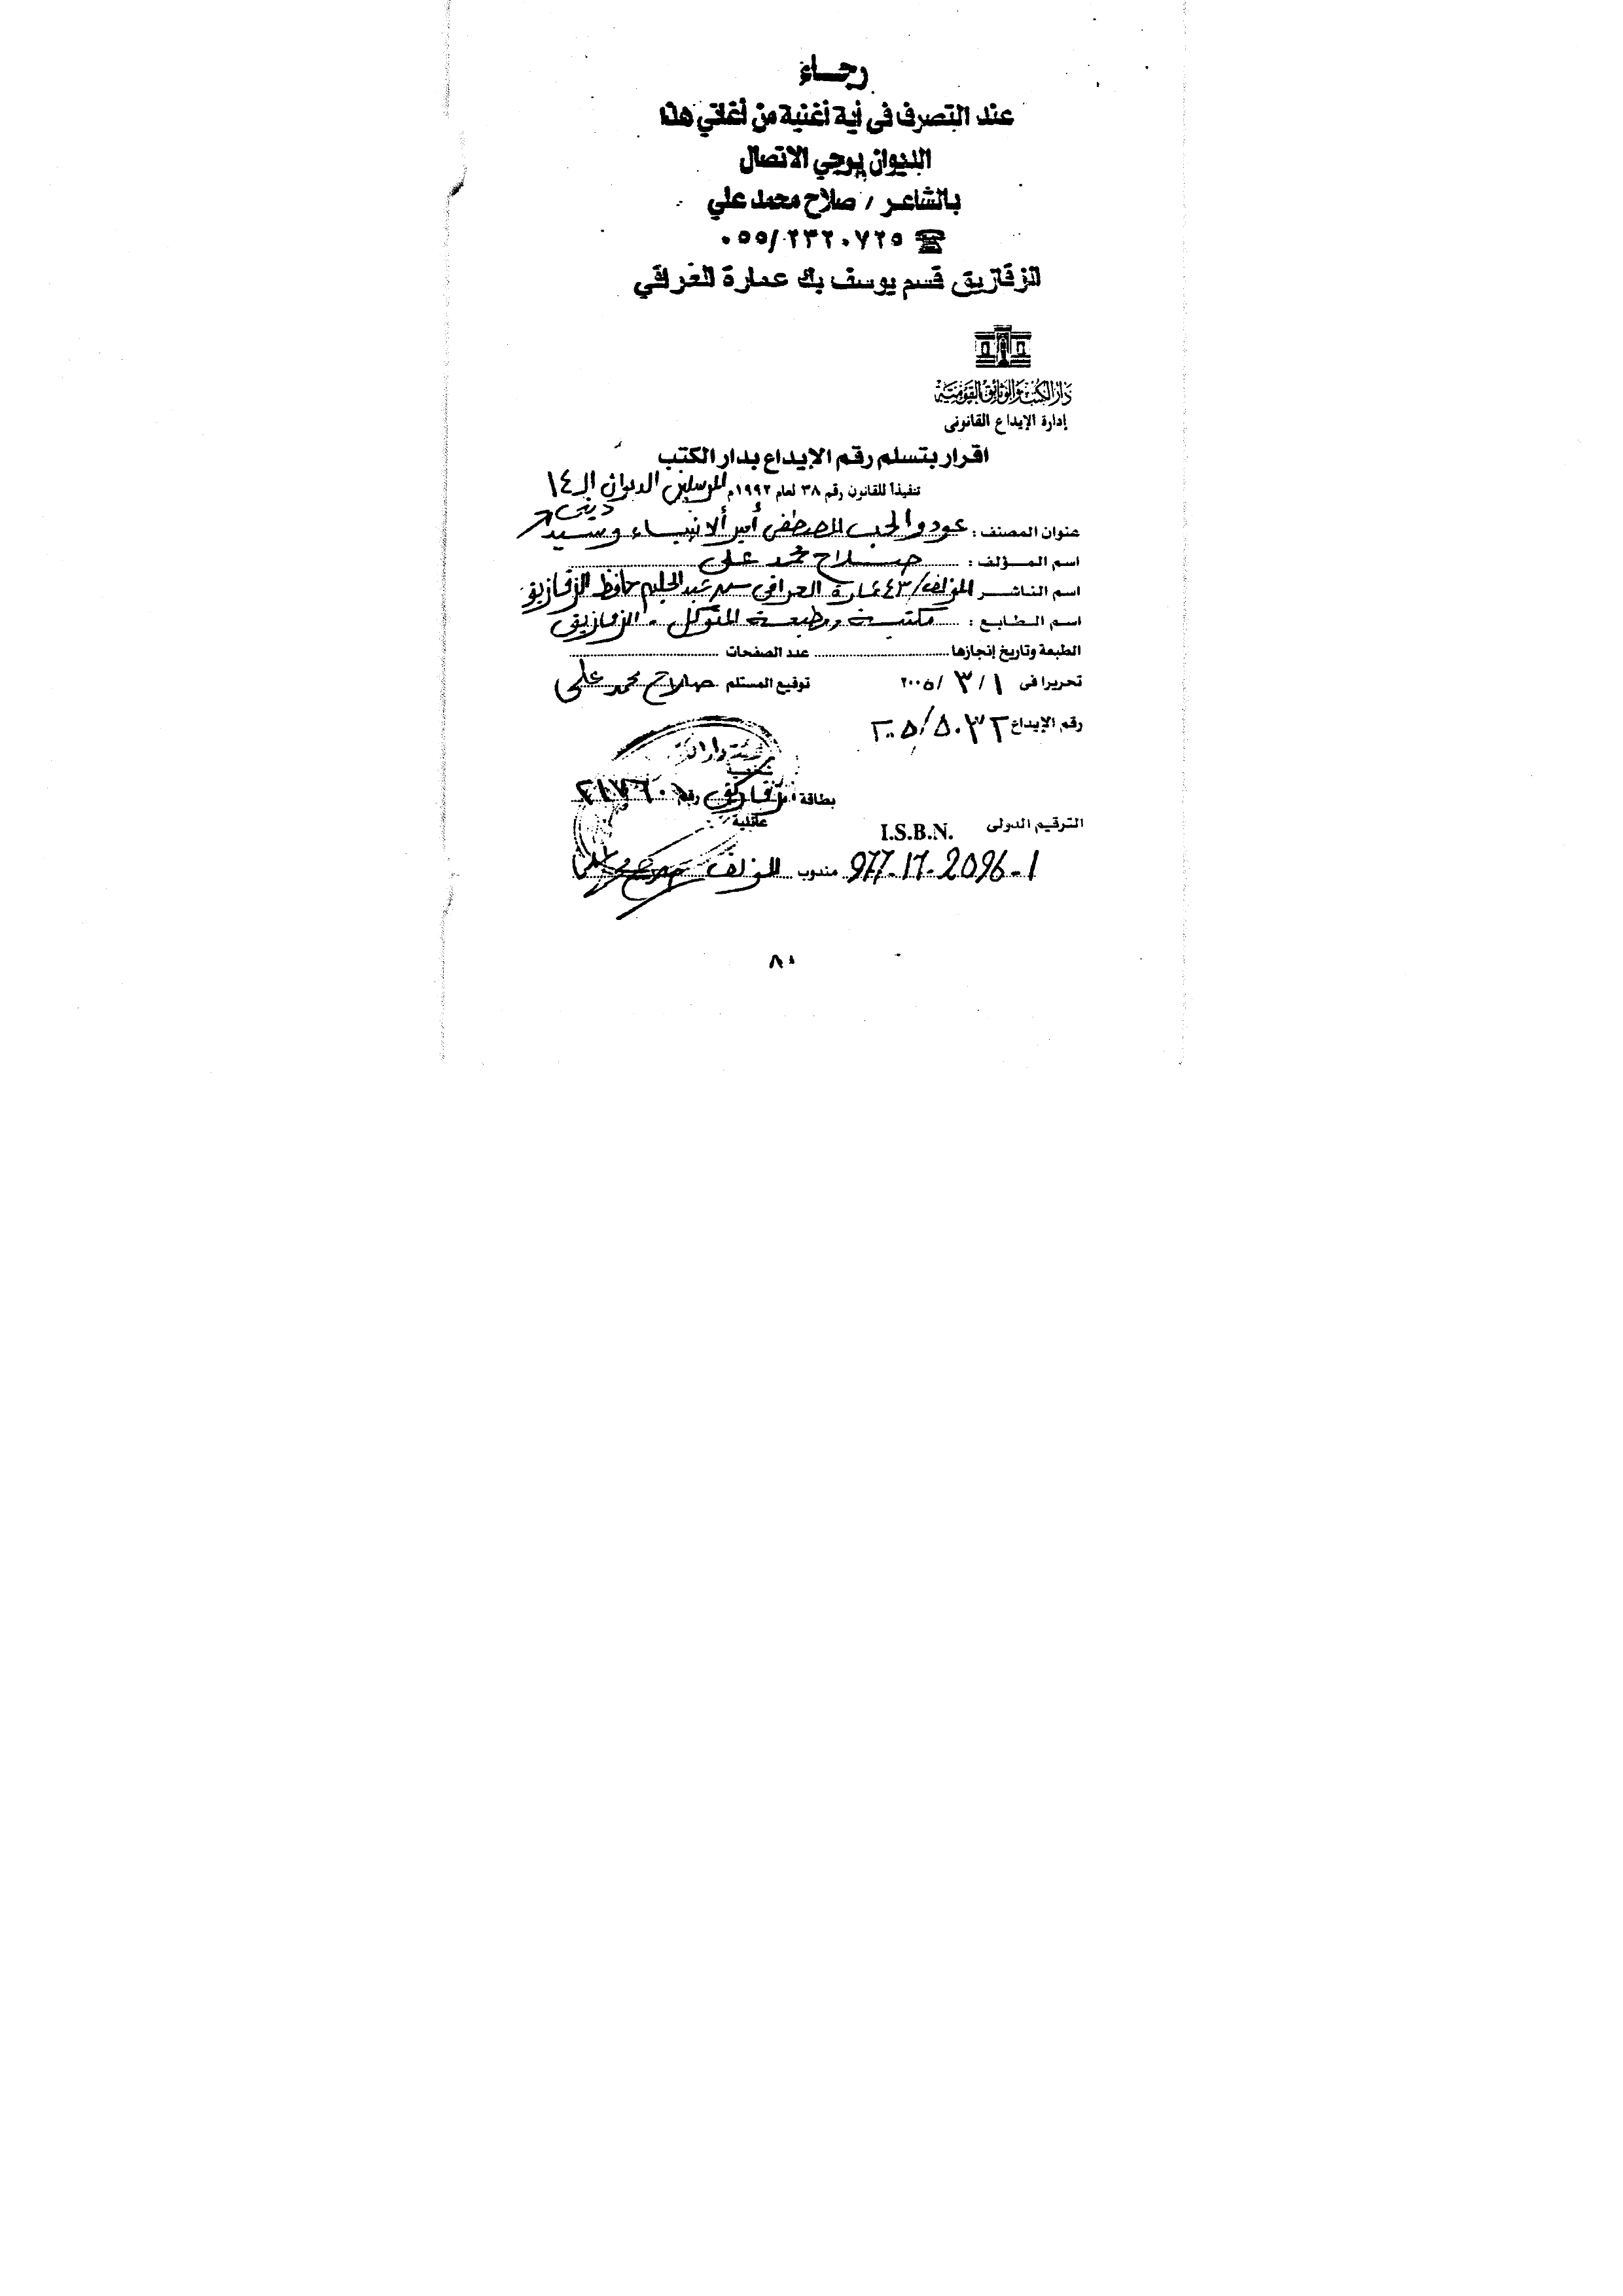 رجــاء
عند التصرف في أية أغنية من أغاني هذا
الديوان يرجي الاتصال
بالشاعر / صلاح محمد علي
☎ ٠٥٥/٢٣٢٠٧٢٥
الزقازيق قسم يوسف بك عمارة العراقي
دار الكتب والوثائق القومية
إدارة الإيداع القانونى
اقرار بتسلم رقم الإيداع بدار الكتب
تنفيذا للقانون رقم ٣٨ لعام ١٩٩٢م المرسلين الديوان الـ ١٤
دينى
عنوان المصنف : عودوا لحب المصطفى أمير الأنبياء وسيد
اسم المـؤلف : صلاح محمد على
اسم الناشـر المؤلف / ٤٣ عمارة العراقى ش عبد الحليم حافظ الزقازيق
اسم الطـابع : مكتبة ومطبعة المتوكل . الزقازيق
الطبعة وتاريخ إنجازها عدد الصفحات
تحريرا فى ١ / ٣ / ٢٠٠٥ توقيع المستلم صلاح محمد على
رقم الإيداع ٥٠٣٢ / ٢٠٠٥
بطاقة رقم
عائلية
الترقيم الدولى I.S.B.N.
977-17-2096-1 مندوب المؤلف
٨٠